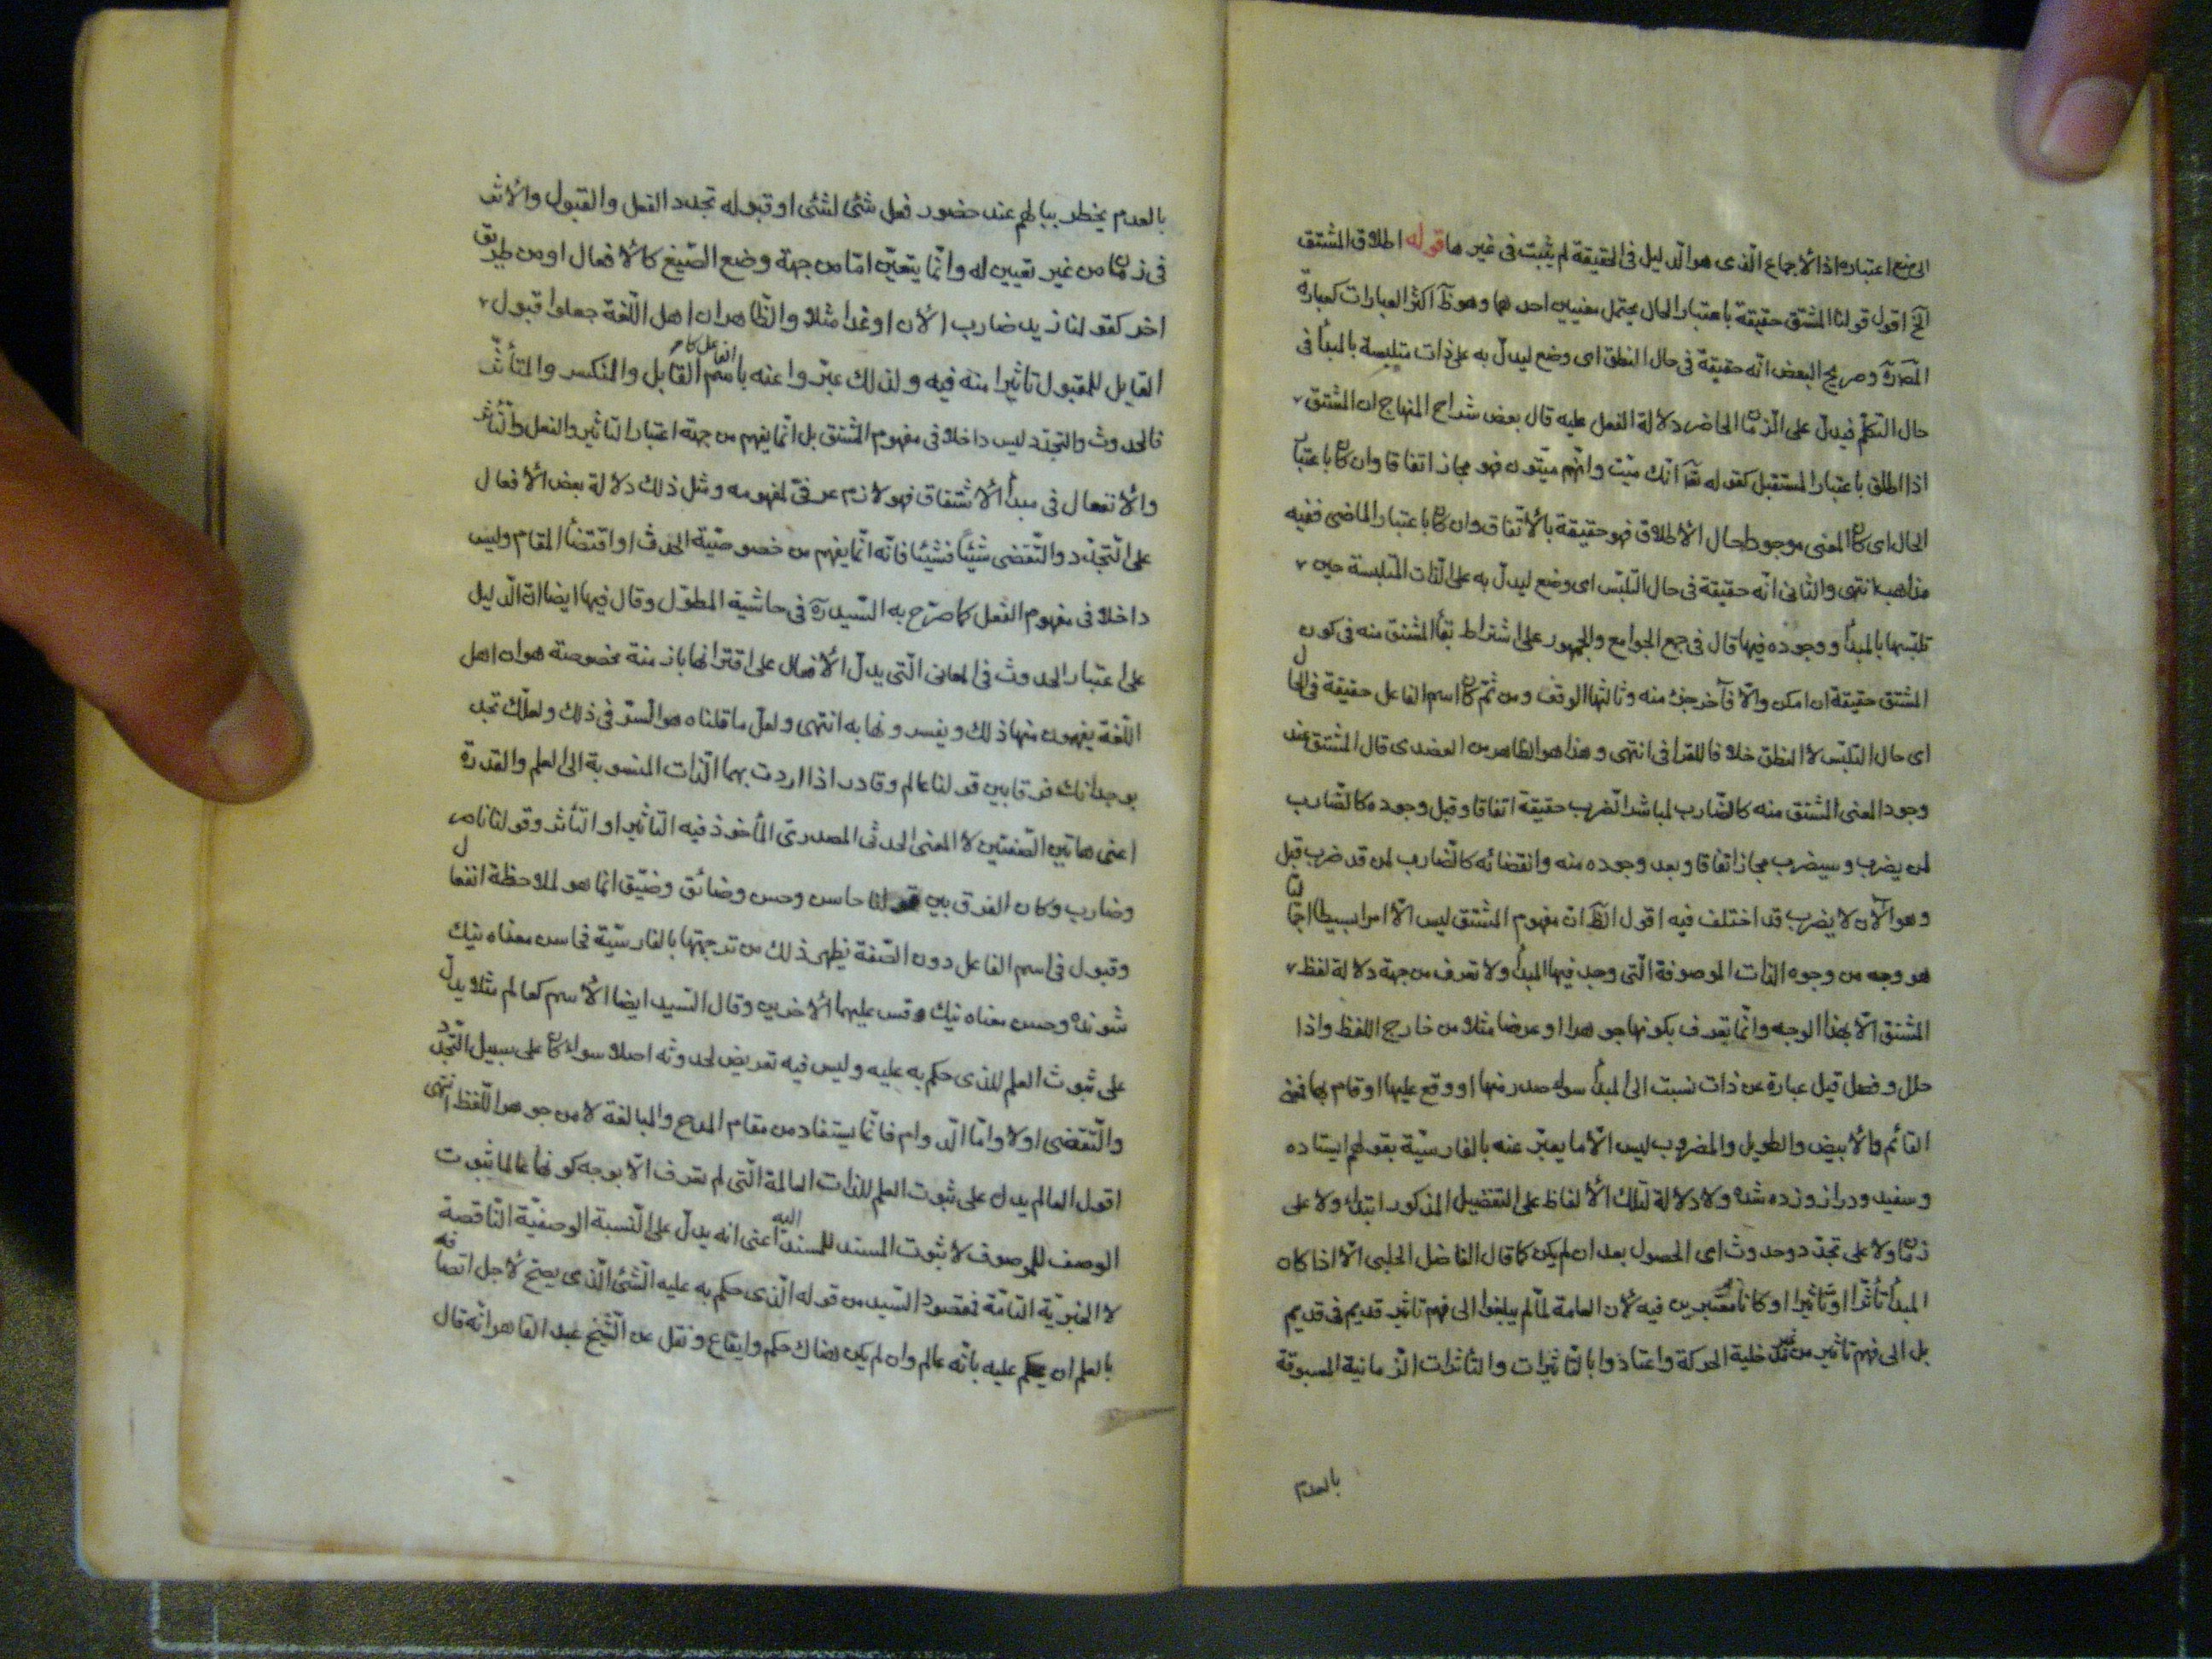 الى منع اعتباره اذ الأجماع الّذى هو الدّليل فى الحقيقة لم يثبت فى غيرها قوله اطلاق المشتق
آلخ اقول قولنا المشتق حقيقة باعتبار الحال يحتمل معنيين احدهما وهو ظَ اكثر العبارات كعبارة
المصَره وصريح البعض انّه حقيقة فى حال النطق اى وضع ليدلّ به على ذات متلبسة بالمبدأ فى
حال التكلّم فيدلّ على الزّمان الحاضر دلالة الفعل عليه قال بعض شراح المنهاج ان المشتق
اذا اطلق باعتبار المستقبل كقوله تعَ انّك ميّت وانّهم ميّتون فهو مجاز اتفاقا وان كان باعتبار
الحال اى كان المعنى موجودا حال الأطلاق فهو حقيقة بالأتّفاق وان كان باعتبار الماضى ففيه
مذاهب انتهى والثانى انّه حقيقة فى حال التلبّس اى وضع ليدلّ به على الذّات المتلبسة حين
تلبّسها بالمبدأ ووجوده فيها قال فى جمع الجوامع والجمهور على اشتراط بقأ المشتق منه فى كون
المشتق حقيقة ان امكن والّا فآخر جزء منه وثالثها الوقف ومن ثمّ كان اسم الفاعل حقيقة فى الحال
اى حال التلبّس لا النطق خلافا للقرافى انتهى وهذا هو الظاهر من العضدى قال المشتق عند
وجود المعنى المشتق منه كالضّارب لمباشر الضّرب حقيقة اتفاقا وقبل وجوده كالضّارب
لمن يضرب وسيضرب مجاز اتفاقا وبعد وجوده منه وانقضائه كالضّارب لمن قد ضرب قبل
وهو الآن لا يضرب قد اختلف فيه اقول الظَ انّ مفهوم المشتق ليس الّا امرا بسيطا اجماليا
هو وجه من وجوه الذات الموصوفة الّتى وجد فيها المبدأ ولا تعرف من جهة دلالة لفظ
المشتق الّا بهذا الوجه وانّما تعرف بكونها جوهرا او عرضا مثلا من خارج اللفظ واذا
حلل وفصل قيل عبارة عن ذات نسبت الى المبدأ سواء صدر منها او وقع عليها او قام بها فمعنى
القائم والأبيض والطويل والمضروب ليس الّا ما يعبّر عنه بالفارسيّة بقولهم ايستاده
وسفيد ودراز وزده شده ولا دلالة لتلك الألفاظ على التفضيل المذكور ابتداء ولا على
زمان ولا على تجدّد وحدوث اى الحصول بعد ان لم يكن كما قال الفاضل الحلبى الّا اذا كان
المبدأ تأثّرا او تأثيرا او كانا معتبرين فيه لأن العامة لمّا لم يبلغوا الى فهم تاثير قديم فى قديم
بل الى فهم تاثير من غير مدخلية الحركة واعتاذوا بالتاثيرات والتأثرات الزّمانية المسبوقة
بالعدم
بالعدم يخطر ببالهم عند حضور فعل شئ لشئ او قبوله تجدد الفعل والقبول والأثر
فى زمان من غير تعيين له وانّما يتعيّن امّا من جهة وضع الصّيغ كالأفعال او من طريق
اخر كقولنا زيد ضارب الأن او غدا مثلا والظّاهر ان اهل اللّغة جعلوا قبول
القابل للمقبول تاثيرا منه فيه ولذلك عبّروا عنه باسم الفاعل كالقابل والمنكسر والمتأثّر
فالحدوث والتجدّد ليس داخلا فى مفهوم المشتق بل انّما يفهم من جهة اعتبار التاثير والفعل والتّأثر
والأنفعال فى مبدأ الأشتقاق فهو لازم عرفىّ لمفهومه ومثل ذلك دلالة بعض الأفعال
على التّجدّد والتّقضى شيئا فشيئا فانّه انّما يفهم من خصوصيّة الحدث او اقتضأ المقام وليس
داخلا فى مفهوم الفعل كما صرّح به السّيد ره فى حاشية المطوّل وقال فيها ايضا انّ الدّليل
على اعتبار الحدوث فى المعانى الّتى يدلّ الأفعال على اقترانها بازمنة مخصوصة هو ان اهل
اللّغة يفهمون منها ذلك ويفسرونها به انتهى ولعلّ ما قلناه هو السّرّ فى ذلك ولعلّك تجد
بوجدانك فرقا بين قولنا عالم وقادر اذا اردت بهما الذّات المنسوبة الى العلم والقدرة
اعنى هاتين الصّفتين لا المعنى الحدثى المصدرى المأخوذ فيه التّاثير او التّأثر وقولنا ناصر
وضارب وكان الفرق بين قولنا حاسن وحسن وضائق وضيّق انّما هو لملاحظة انفعال
وقبول فى اسم الفاعل دون الصّفة يظهر ذلك من ترجمتها بالفارسيّة فحاسن معناه نيك
شونده وحسن معناه نيك وقس عليهما الأخرين وقال السّيد ايضا الأسم كعالم مثلا يدلّ
على ثبوت العلم للذى حكم به عليه وليس فيه تعريض لحدوثه اصلا سواء كان على سبيل التّجدّد
والتّقضى او لا وامّا الدّوام فانّما يستفاد من مقام المدح والمبالغة لا من جوهر اللّفظ انتهى
اقول العالم يدل على ثبوت العلم للذات العالمة الّتى لم تعرف الّا بوجه كونها عالما ثبوت
الوصف للموصوف لا ثبوت المسند للمسند اليه اعنى انه يدلّ على النّسبة الوصفيّة النّاقصة
لا الخبريّة التامّة فمقصود السّيد من قوله الّذى حكم به عليه الشّئ الّذى يصح لأجل اتصافه
بالعلم ان يحكم عليه بانّه عالم وان لم يكن هناك حكم وايقاع ونقل عن الشّيخ عبد القاهر انّه قال